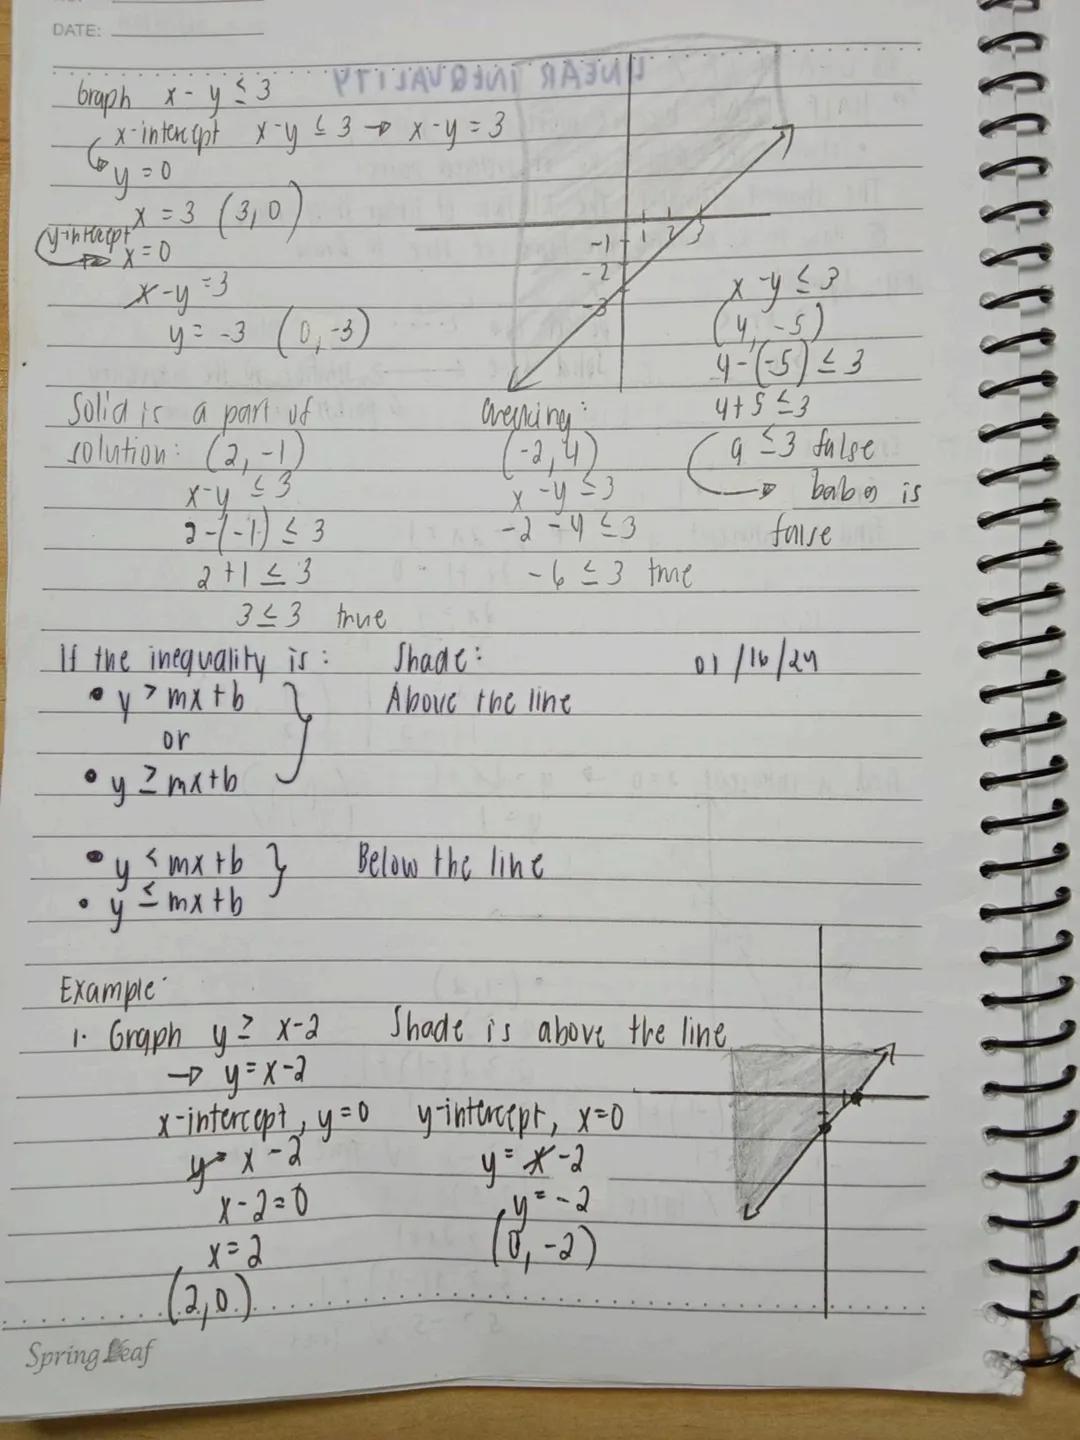 DATE:
LINEAR INEQUALITY
Graph x - y ≤ 3
x-intercept x-y ≤ 3 → x-y = 3
y = 0
x = 3 (3, 0)
y-intercept
x = 0
x-y = 3
y = -3 (0, -3)
1 2 3
-1
-2
-3
x-y ≤ 3
(4, -5)
4-(-5) ≤ 3
4+5 ≤ 3
9 ≤ 3 false
→ baba is
false
Solid is a part of
solution: (2, -1)
x-y ≤ 3
2-(-1) ≤ 3
2+1 ≤ 3
3 ≤ 3 true
Checking:
(-2, 4)
x - y ≤ 3
-2 - 4 ≤ 3
-6 ≤ 3 true
If the inequality is: Shade: 01/16/24
• y > mx+b Above the line
or
• y ≥ mx+b
• y < mx+b Below the line
• y ≤ mx+b
Example:
1. Graph y ≥ x-2 Shade is above the line
→ y = x-2
x-intercept, y=0 y-intercept, x=0
y = x-2 y = x-2
x-2=0 y = -2
x = 2 (0, -2)
(2, 0)
Spring Leaf